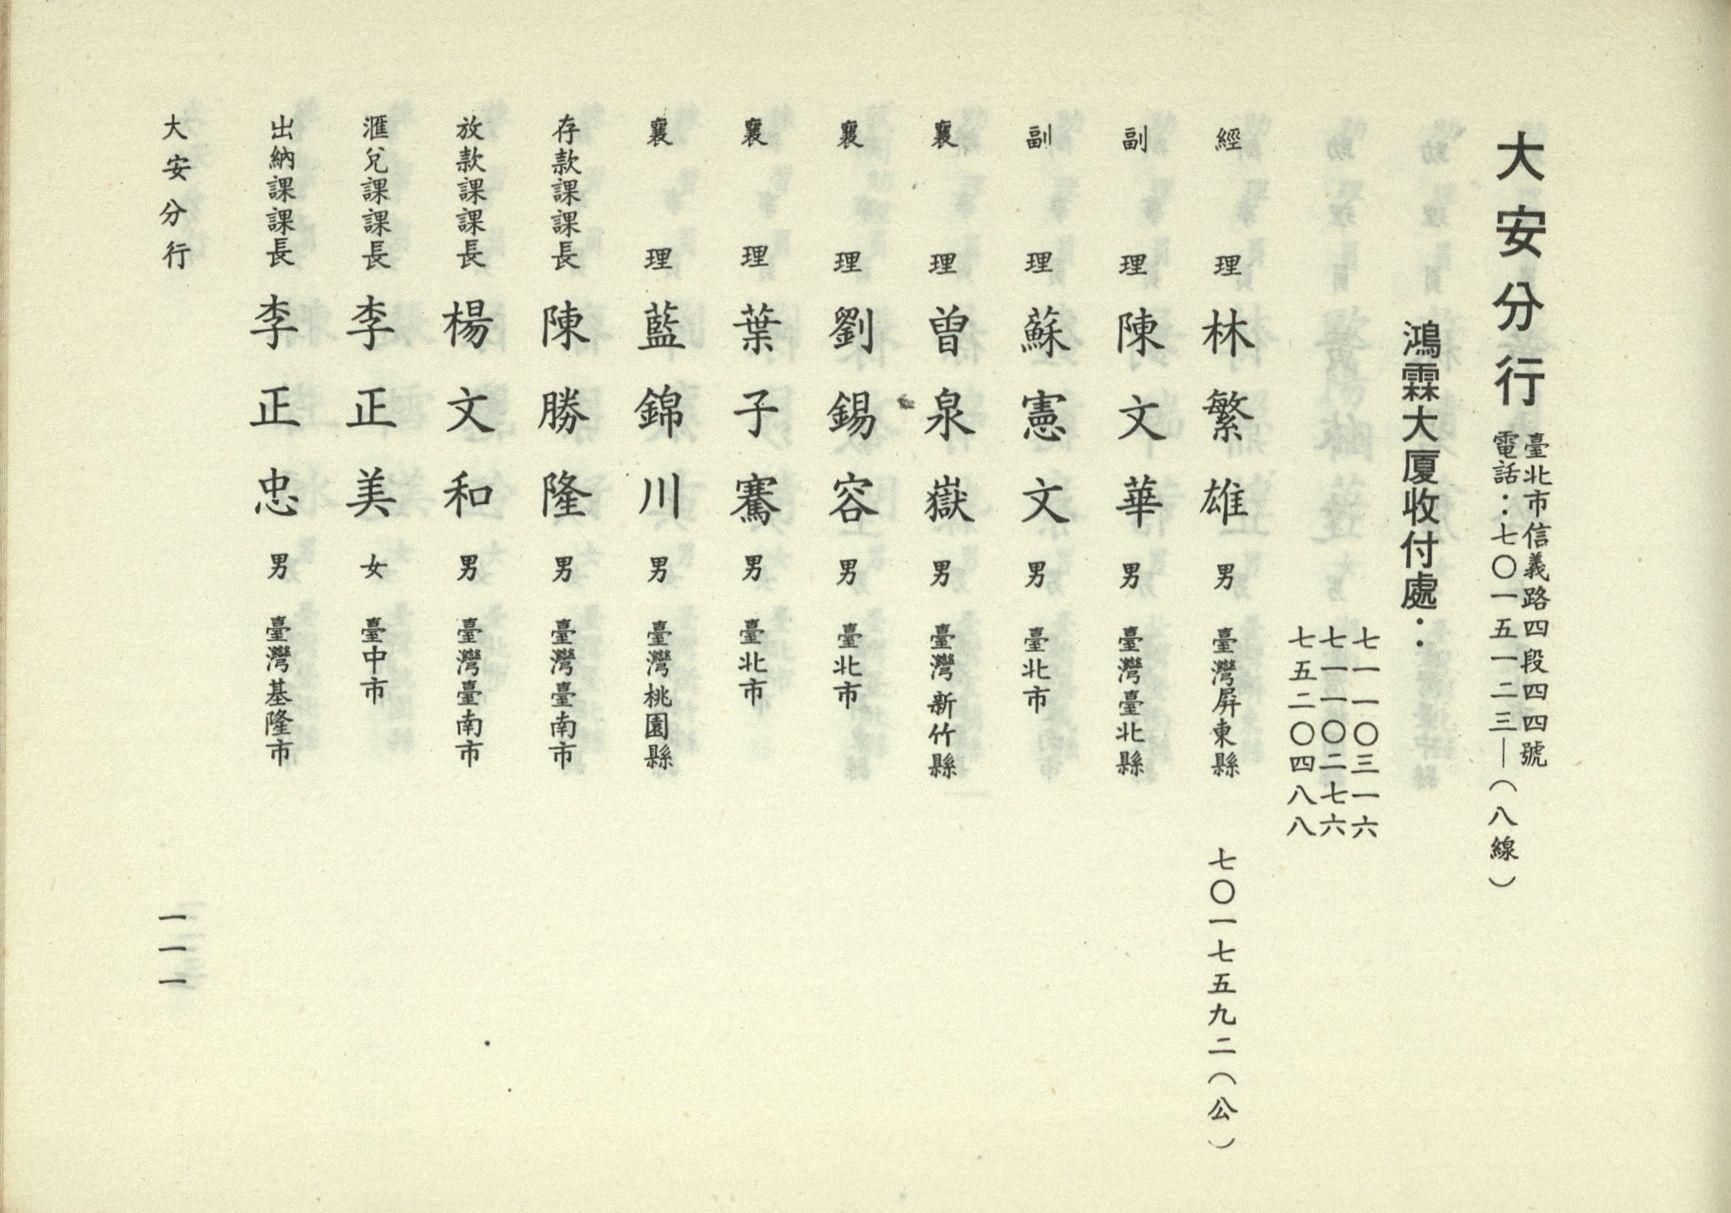 大安分行
臺北市信義路四段四四號
電話：七〇一五一二三—（八線）
鴻霖大厦收付處：
七一一〇三一六
七一一〇二七六
七五二〇四八八
經理 林繁雄 男 臺灣屏東縣 七〇一七五九二（公）
副理 陳文華 男 臺灣臺北縣
副理 蘇憲文 男 臺北市
襄理 曾泉嶽 男 臺灣新竹縣
襄理 劉錫容 男 臺北市
襄理 葉子騫 男 臺北市
襄理 藍錦川 男 臺灣桃園縣
存款課課長 陳勝隆 男 臺灣臺南市
放款課課長 楊文和 男 臺灣臺南市
滙兌課課長 李正美 女 臺中市
出納課課長 李正忠 男 臺灣基隆市
大安分行
一一一